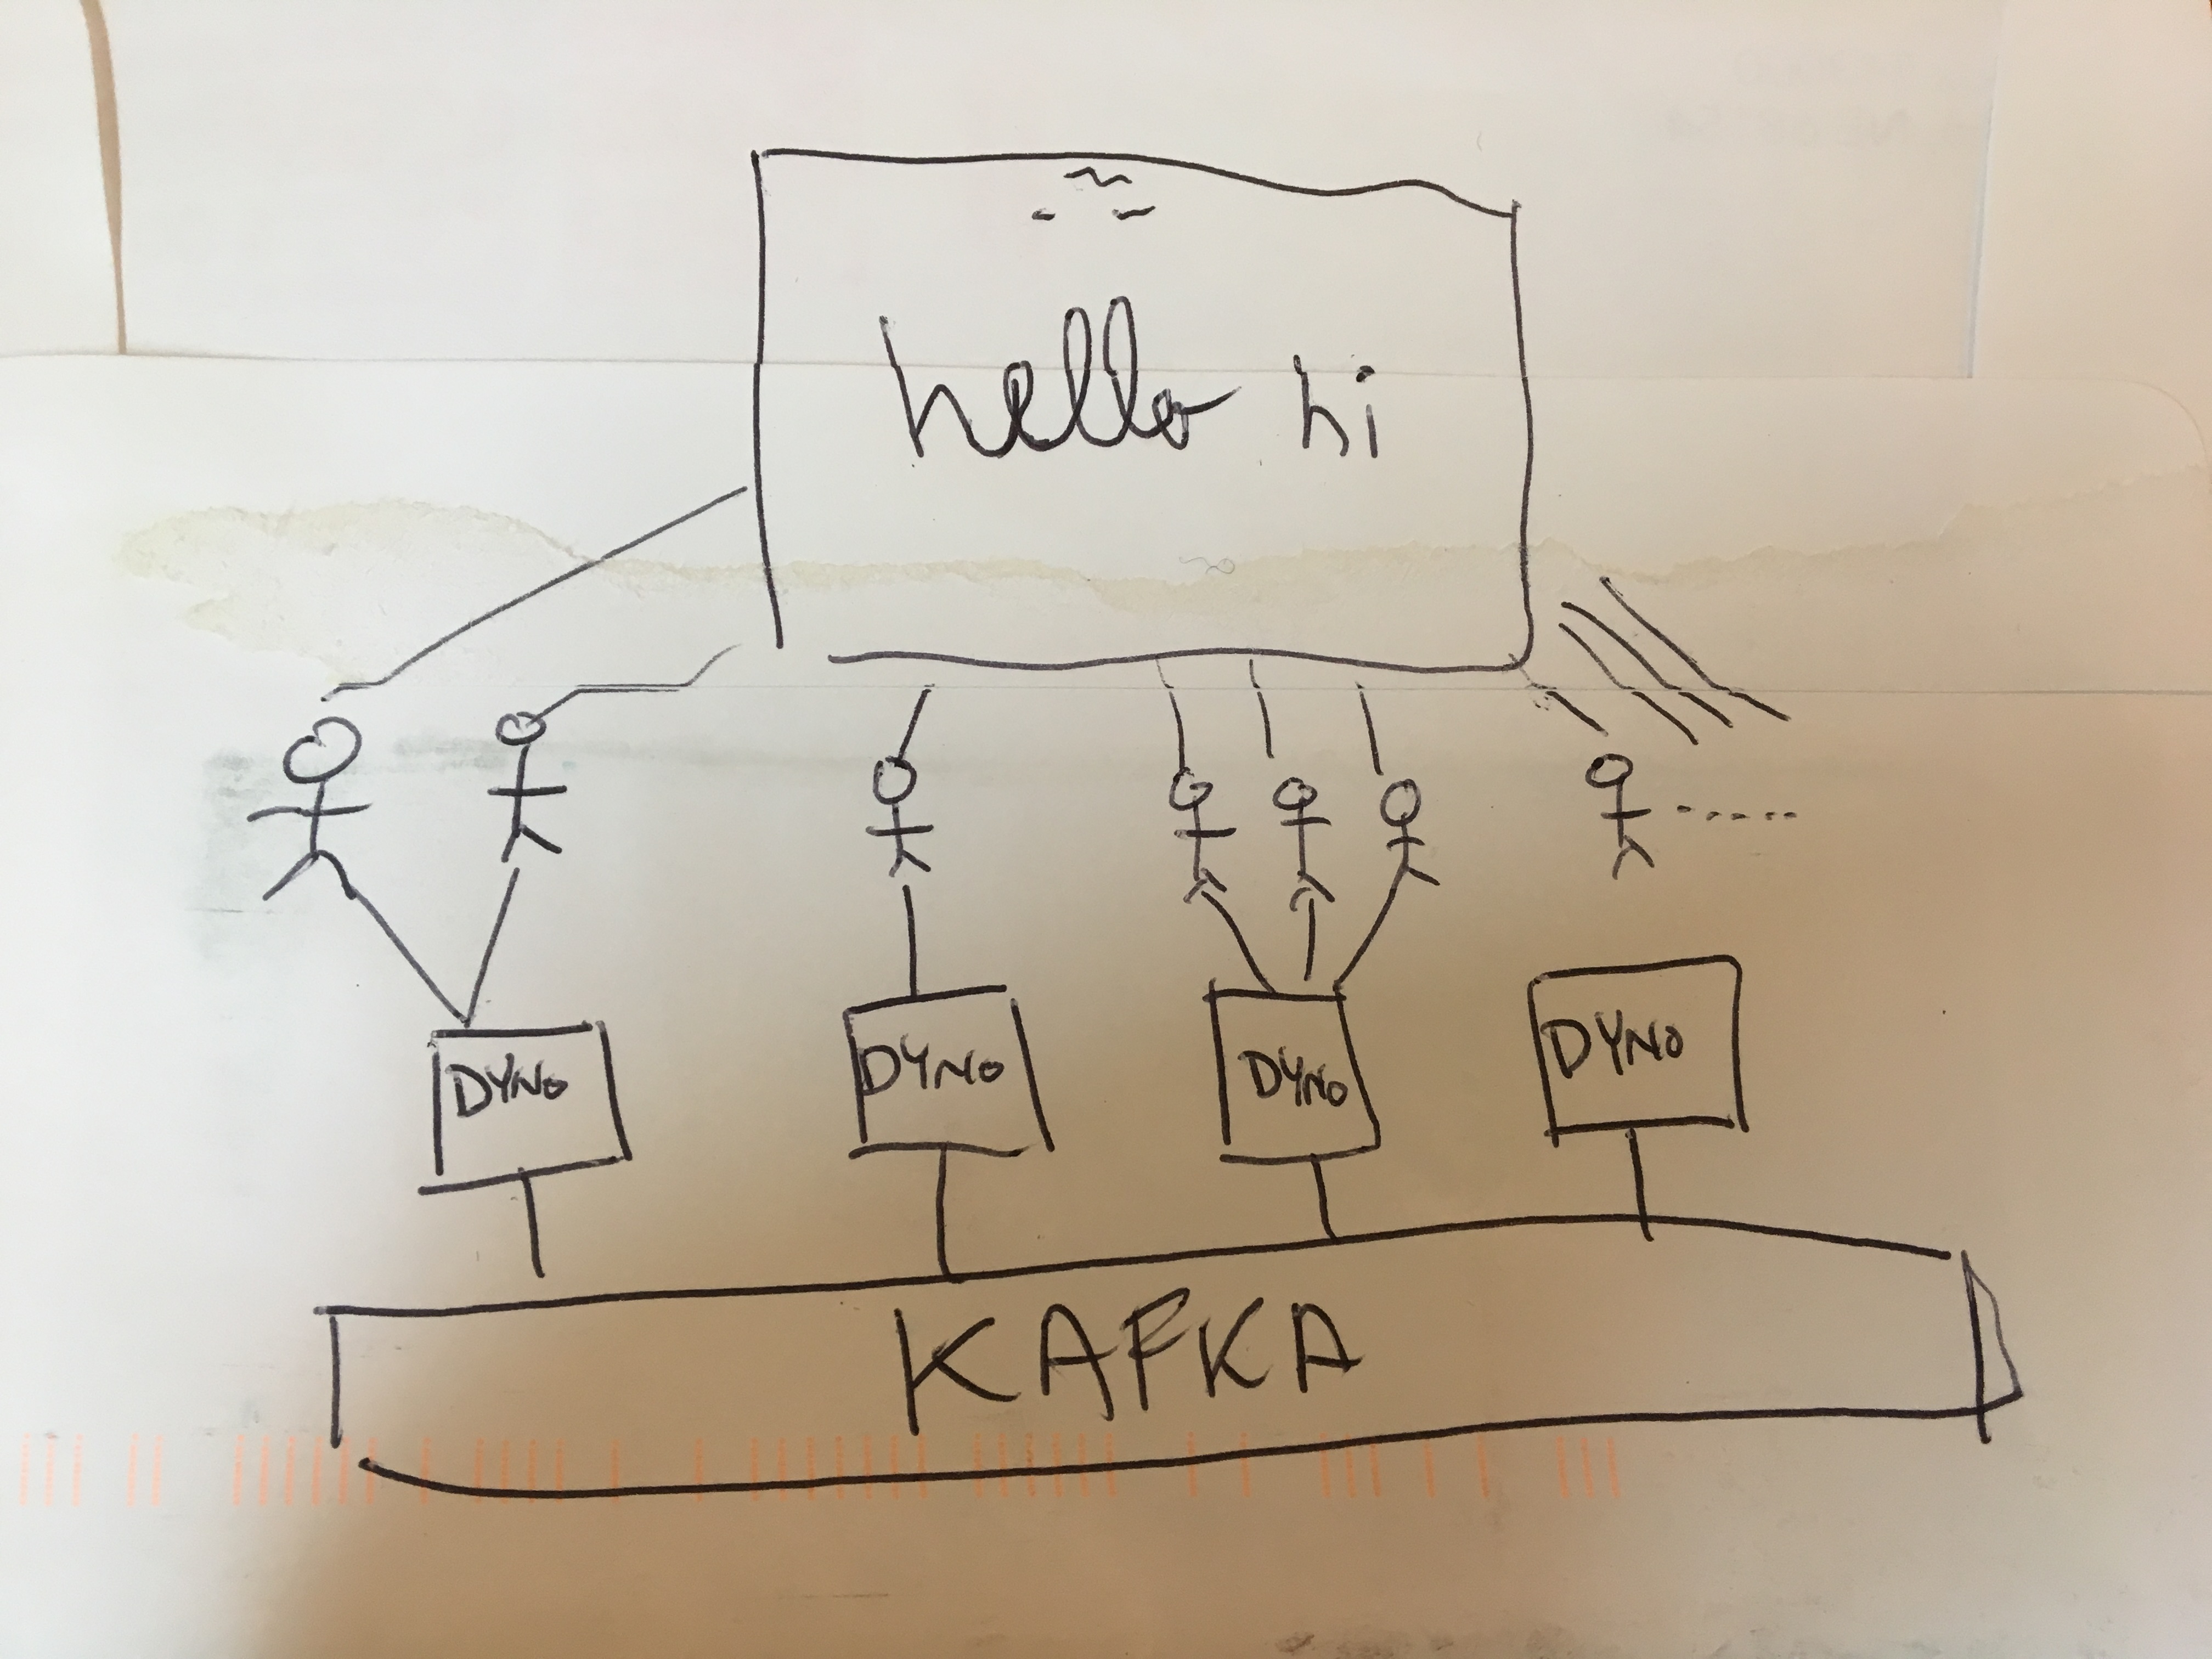 hello hi
DYNO DYNO DYNO DYNO
KAFKA